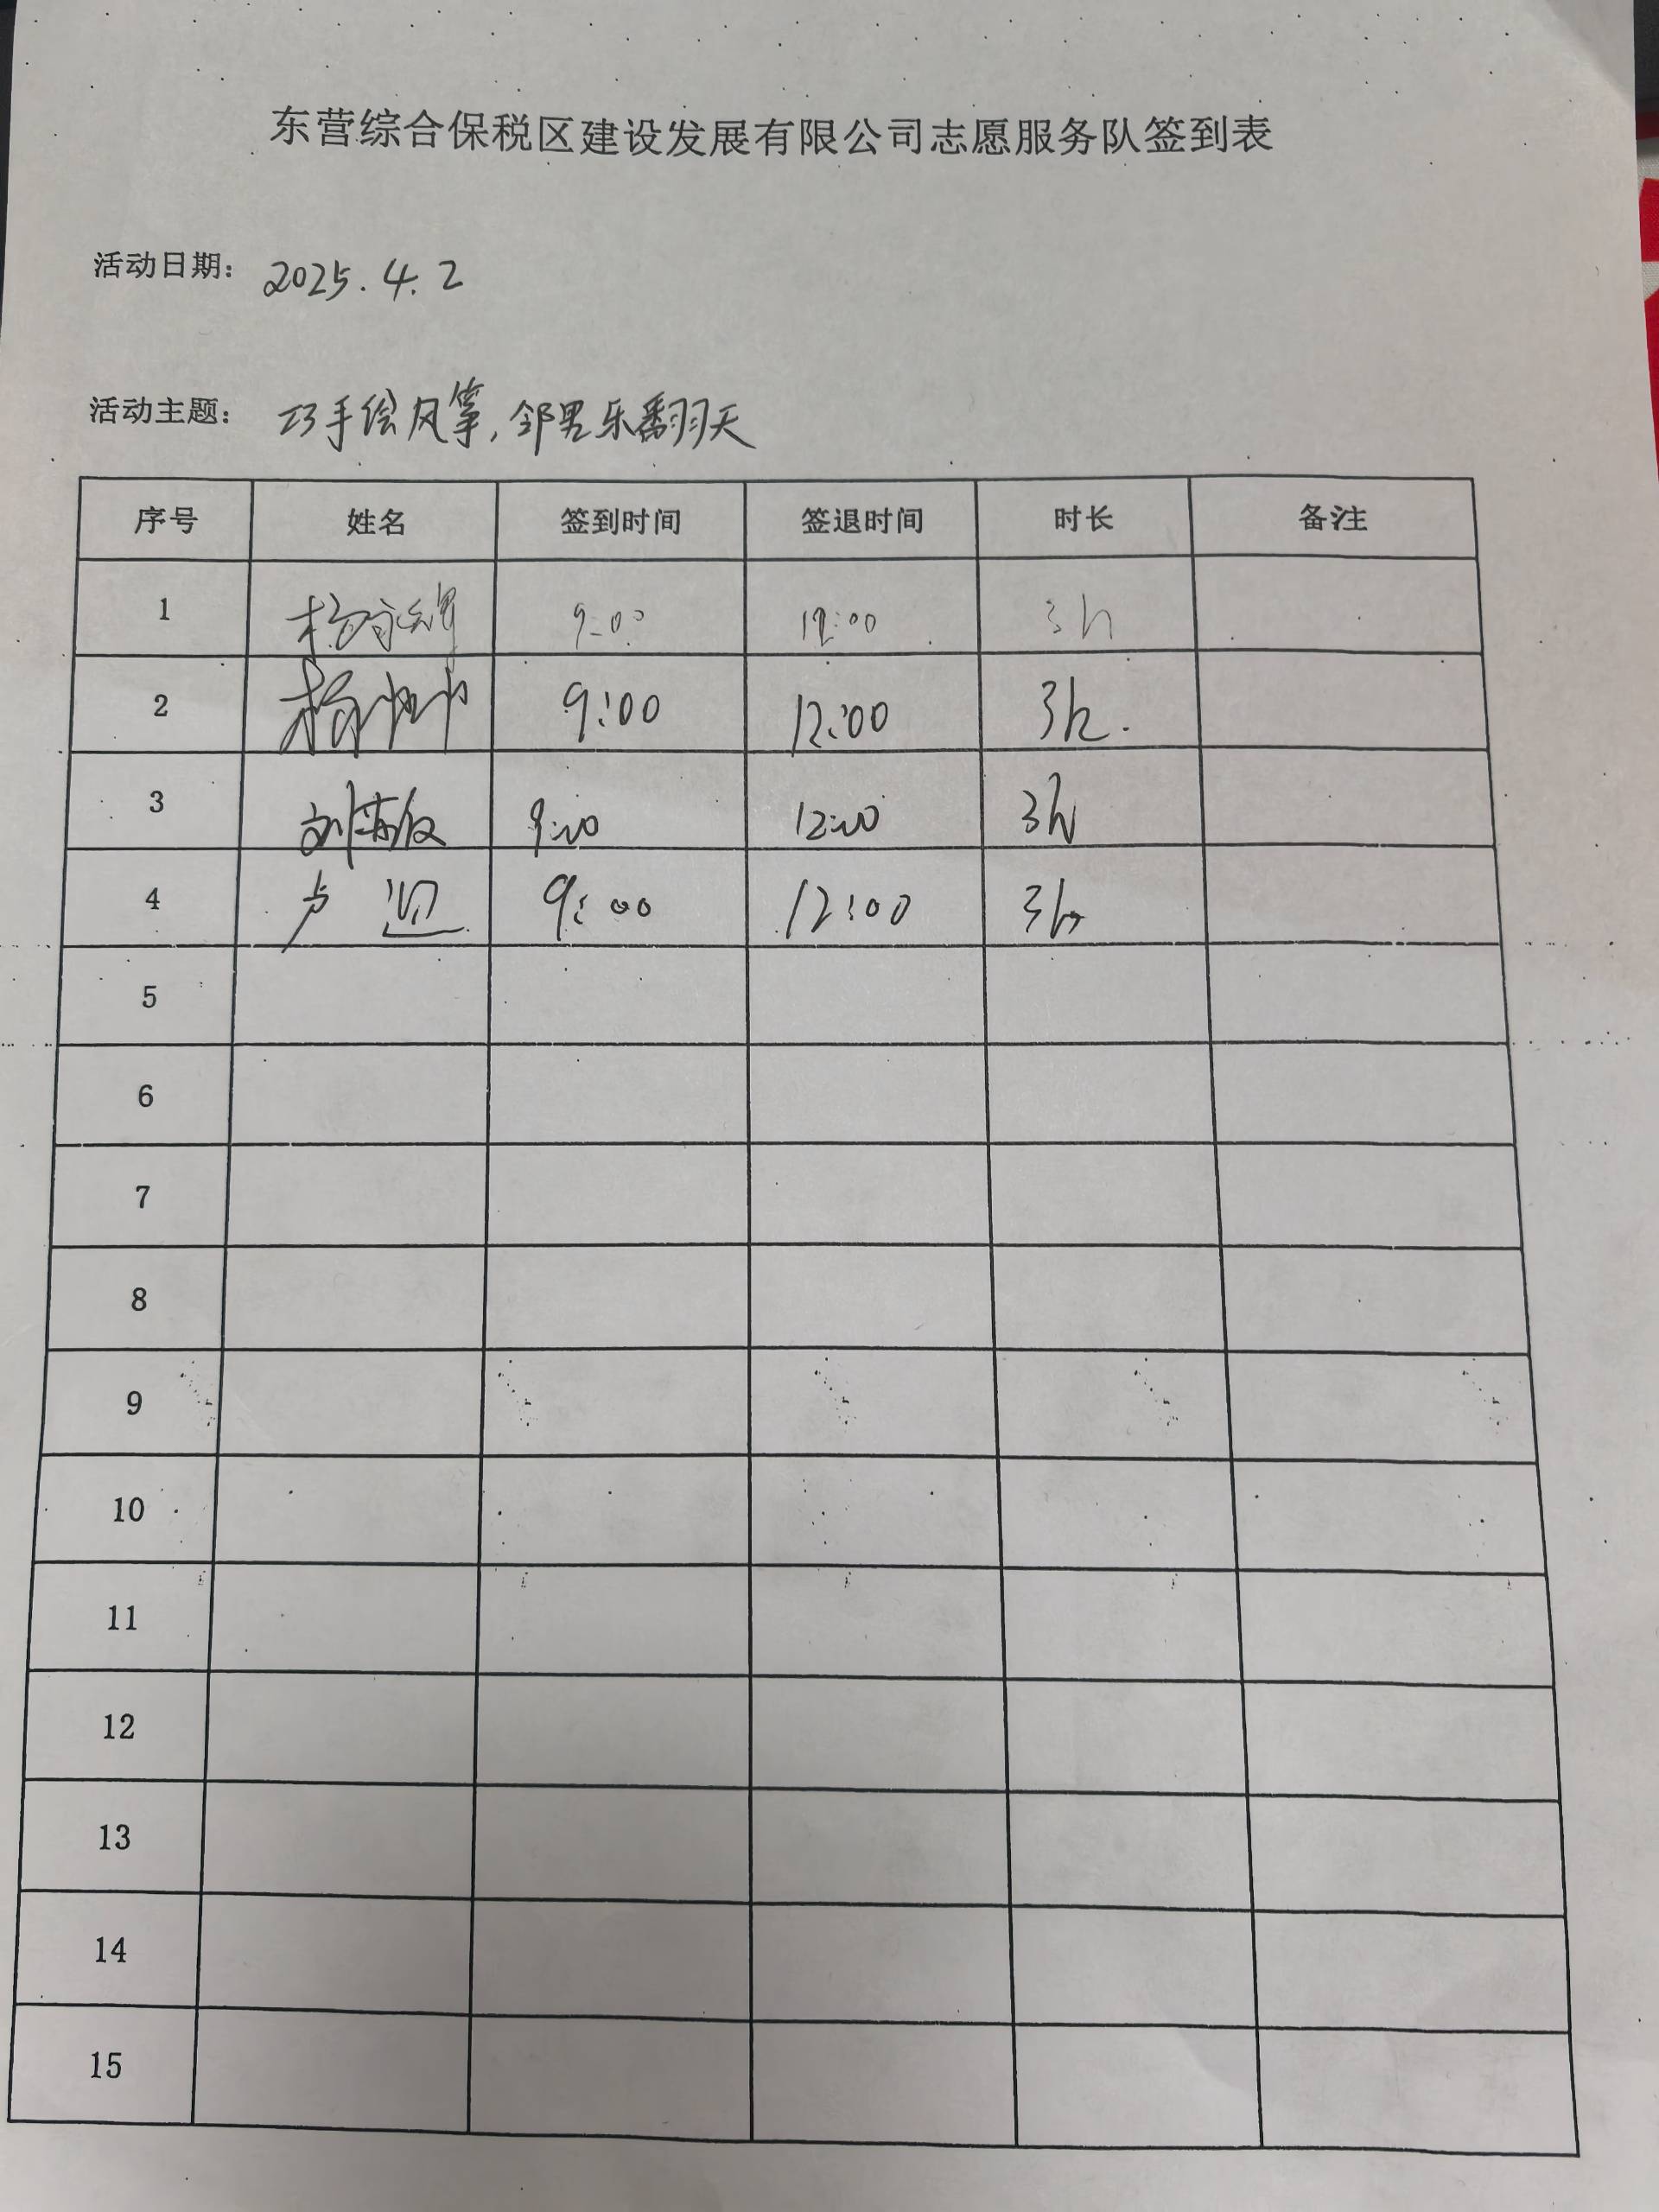 东营综合保税区建设发展有限公司志愿服务队签到表
活动日期: 2025.4.2
活动主题: 巧手绘风筝,邻里乐翻天
序号 姓名 签到时间 签退时间 时长 备注
1 9:00 12:00 3h
2 杨帅帅 9:00 12:00 3h.
3 9:00 12:00 3h
4 卢迎 9:00 12:00 3h
5
6
7
8
9
10
11
12
13
14
15